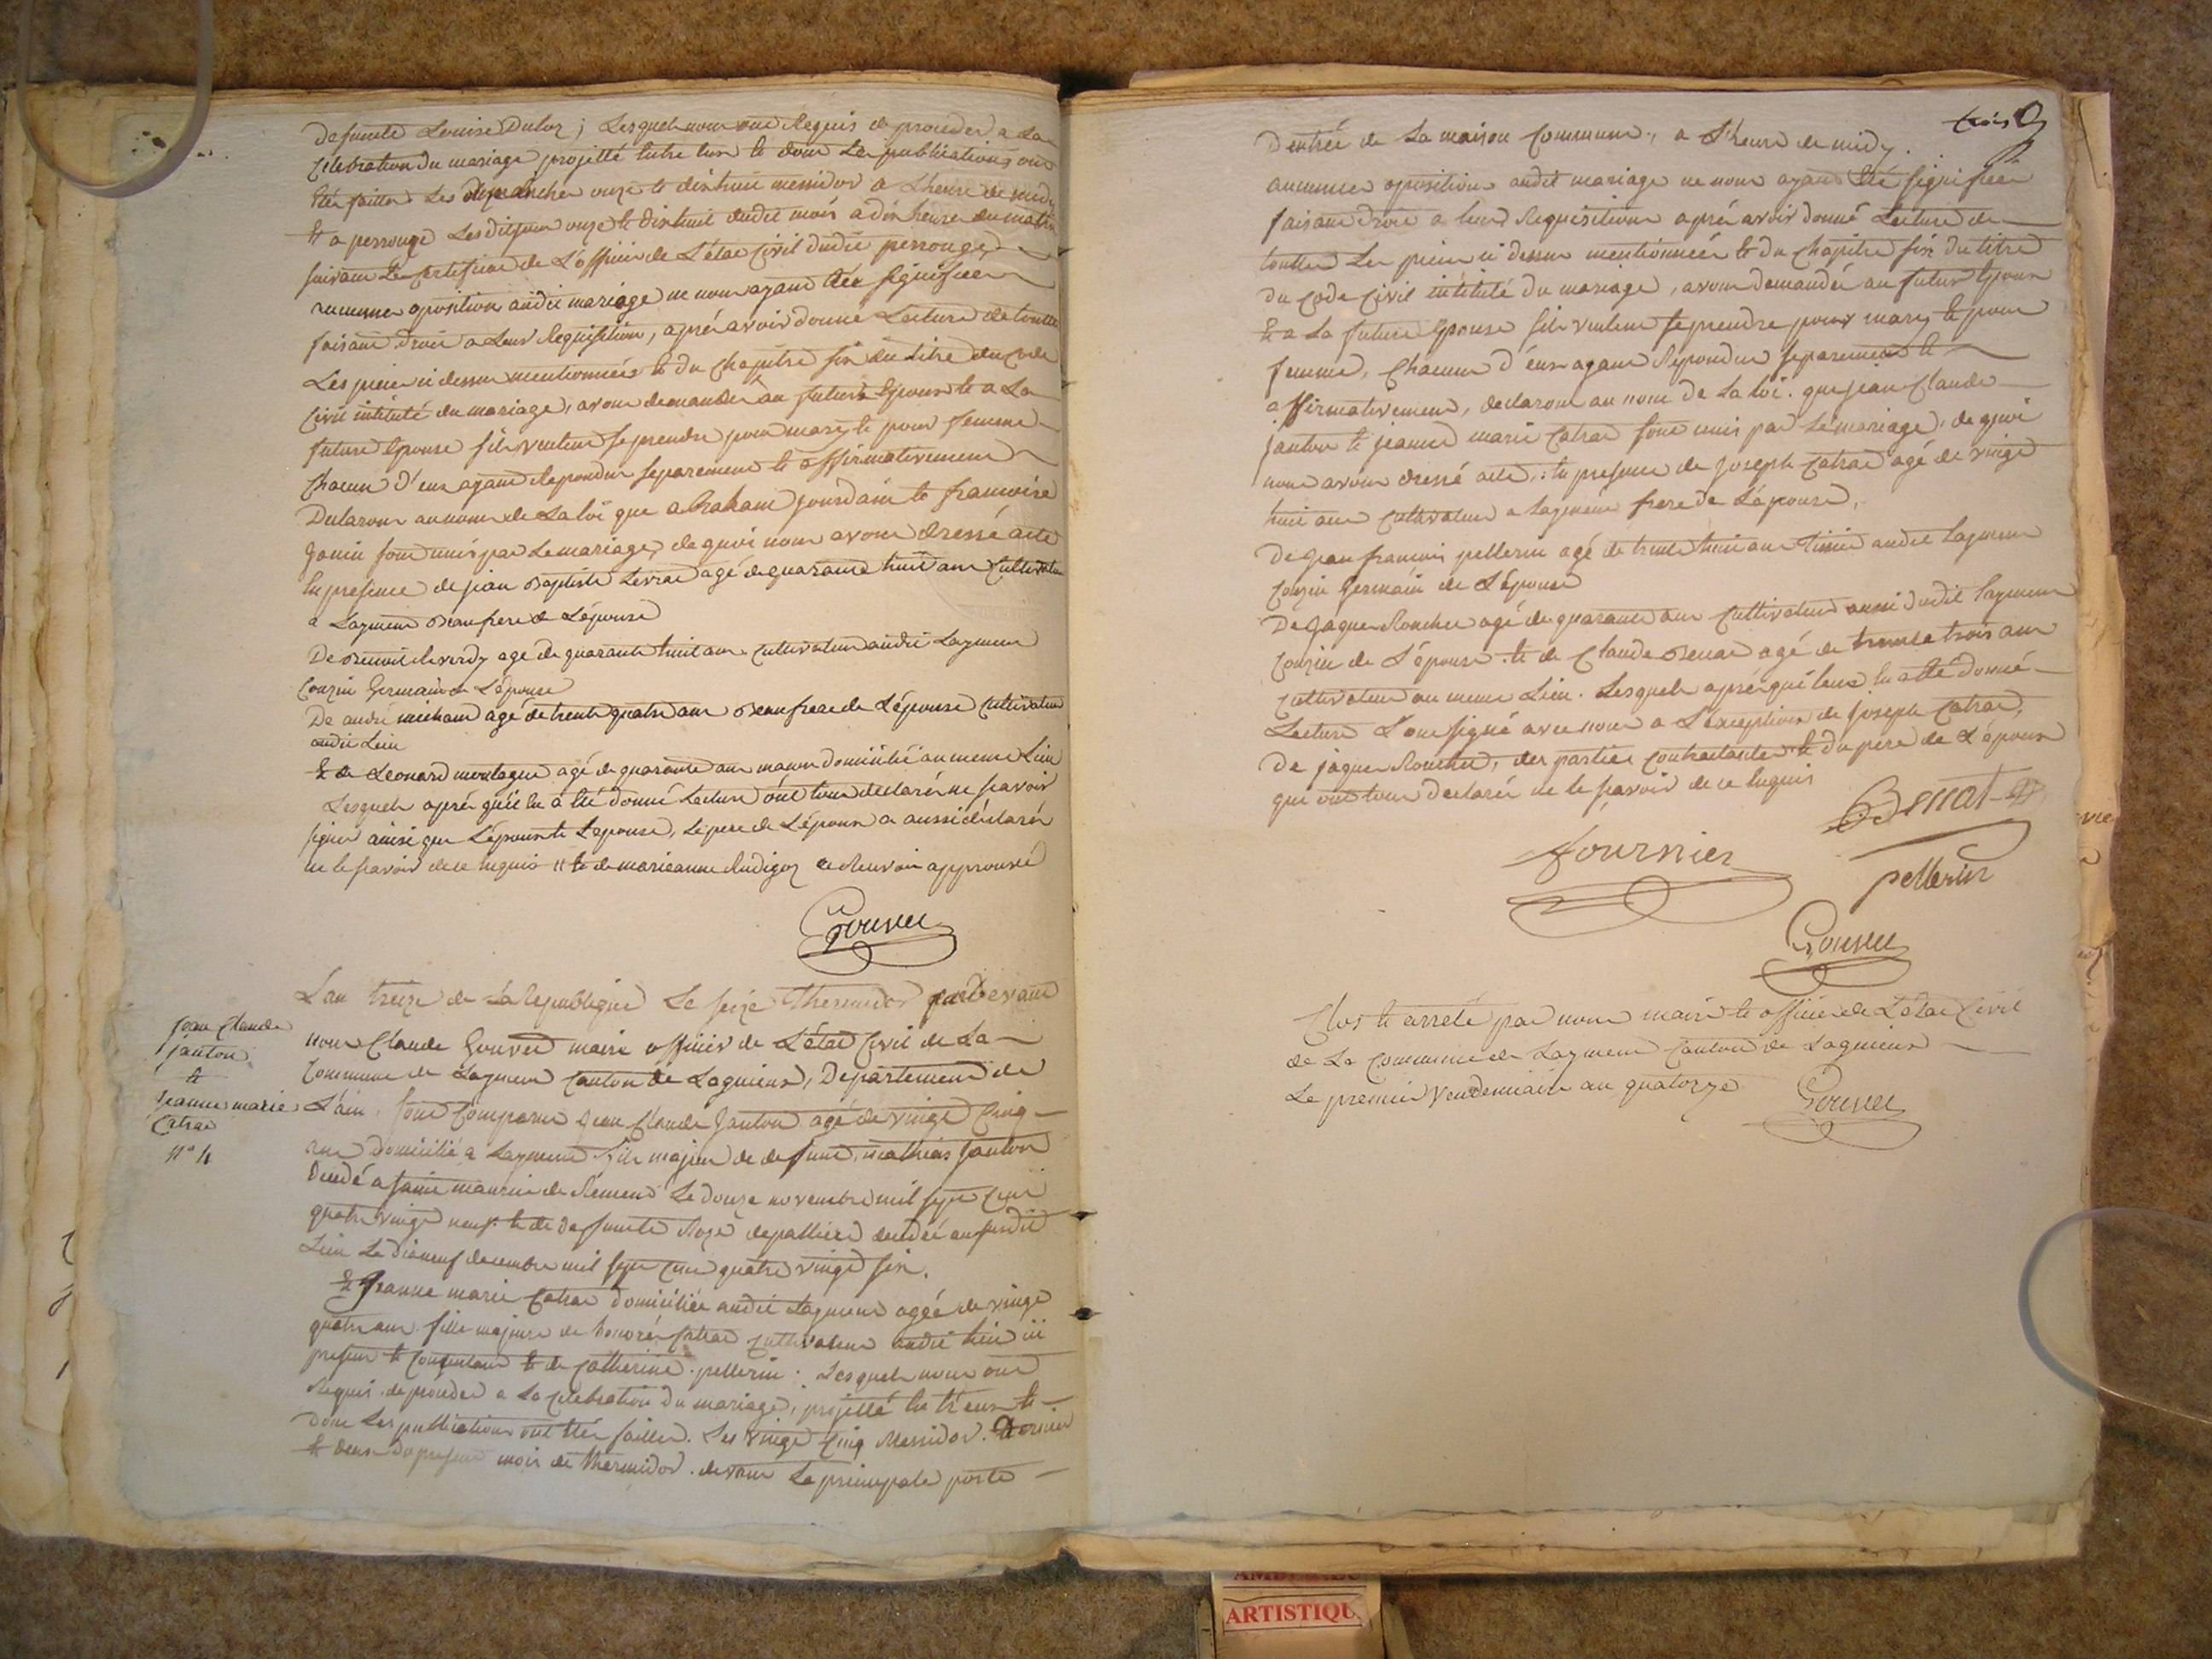 defuncte Louise Duloz; Lesquels nous ont Requis de proceder a La
Celebration du mariage projetté entre eux et dont Les publications ont
été faittes Les dimanches onze et dixhuit messidor a L'heure de midy
et a perrouge Lesdits jours onze et dixhuit dudit mois a dix heures du matin
suivant Le certificat de L'officier de L'état Civil dudit perrouge,
aucunne oposition audit mariage ne nous ayant été signifiée
faisant droit a Leur Requisition, aprés avoir donné Lecture de touttes
Les pieces ci dessus mentionnées et du Chapitre six du titre du Code
Civil intitulé du mariage, avons demandés au futur Epoux et a La
future Epouse s'ils veulent se prendre pour mary et pour femme
Chacun d'eux ayant Repondu separement et affirmativement
Declarons au nom de La loi que abraham jourdain et francoise
janin sont unis par Le mariage, de quoi nous avons dressé acte
En presence de jean Baptiste Levrat agé de quarante huit ans Cultivateur
a Laymens Beaufrere de L'épouse
De Benoit Reverdy agé de quarante huit ans Cultivateur audit Laymens
Couzin Germain de L'épouse
De andré michaud agé de trente quatre ans Beaufrere de L'épouse Cultivateur
audit Lieu
et de Leonard montagne agé de quarante ans maçon domicilié au meme Lieu
Lesquels aprés qu'il leu a été donné Lecture ont tous declarés ne sçavoir
signer ainsi que L'époux et L'epouse, Le pere de L'époux a aussi déclaré
ne le sçavoir de ce Enquis // et de marieanne Rudigoz ce Renvoi approuvé
Gouvee
Jean Claude
janton
et
Jeanne marie
Catrat
n° 4
L'an treize de La Republique Le seize Thermidor pardevant
nous Claude Gouvee maire officier de L'état Civil de La
Commune de Laymens Canton de Lagnieux, Departement de
L'ain, sont Comparus Jean Claude Janton agé de vingt Cinq
ans domicilié a Laymens fils majeur de defunt mathieu janton
decedé a saint maurice de Rémens Le douze novembre mil sept Cent
quatre vingt neuf et de defuncte Roze depalliere decedée au susdit
Lieu Le dixneuf decembre mil sept Cent quatre vingt six.
et Jeanne marie Catrat domiciliée audit Laymens agée de vingt
quatre ans fille majeure de honoré Catrat cultivateur audit Lieu ici
present et Consentant et de Catherine pellerin: Lesquels nous ont
Requis de proceder a La Celebration du mariage, projetté En tr'eux et
dont Les publications ont été faittes. Les vingt Cinq Messidor. Dernier
et deux du present mois de thermidor. devant La principale porte
trois
D'entrée de La maison Commune, a L'heure de midy.
aucunne oposition audit mariage ne nous ayant été signifiée
faisant droit a leur Requisition aprés avoir donné Lecture de
touttes Les pieces ci dessus mentionnées et du Chapitre six du titre
du Code Civil intitulé du mariage, avons demandés au futur Epoux
et a La future Epouse s'ils veulent se prendre pour mary et pour
femme, Chacun d'eux ayant Repondu separement et
affirmativement, declarons au nom de La loi. que jean Claude
janton et jeanne marie Catrat sont unis par Le mariage, de quoi
nous avons dressé acte, En presence de Joseph Catrat agé de vingt
huit ans Cultivateur a Laymens frere de L'épouse,
De jean francois pellerin agé de trente huit ans Tissier audit Laymens
Couzin Germain de L'épouse
De Jaques Roucher agé de quarante ans Cultivateur aussi dudit Laymens
Couzin de L'épouse et de Claude Benat agé de trente trois ans
Cultivateur au meme Lieu. Lesquels aprés qu'il leus En a été donné
Lecture L'ont signé avec nous a L'exception de Joseph Catrat,
De jaques Roucher, des parties Contractantes et du pere de L'épouse
qui ont tous declarés ne le sçavoir de ce Enquis
Benat
fournier
pellerin
Gouvee
Clos et arreté par nous maire et officier de L'état Civil
de La Commune de Laymens Canton de Lagnieux
Le premier vendemiaire an quatorze
Gouvee
ARTISTIQU